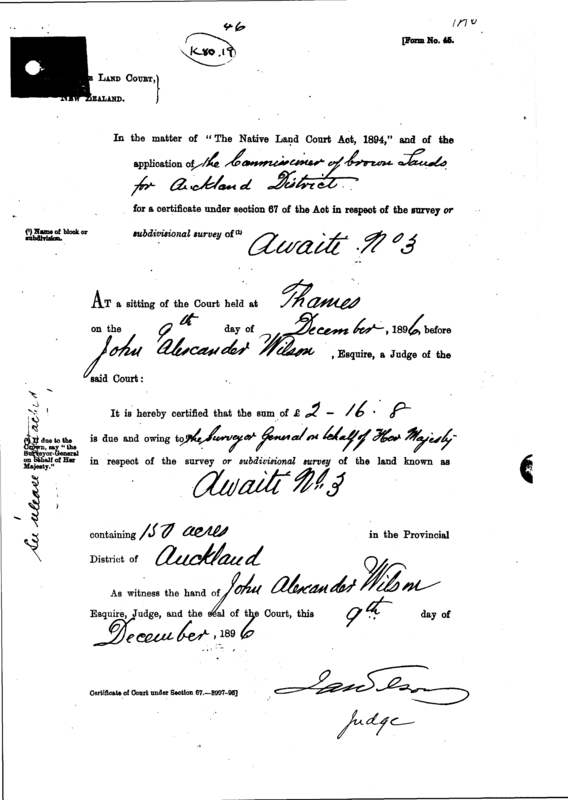 46
K80.19
[Form No. 45.
Land Court,
New Zealand.
In the matter of "The Native Land Court Act, 1894," and of the
application of the Commissioner of Crown Lands
for Auckland District
for a certificate under section 67 of the Act in respect of the survey or
(¹) Name of block or
subdivision.
subdivisional survey of (1)
Awaiti No 3
At a sitting of the Court held at Thames
on the 9th day of December, 1896, before
John Alexander Wilson, Esquire, a Judge of the
said Court:
It is hereby certified that the sum of £ 2 - 16 . 8
is due and owing to the Surveyor General on behalf of Her Majesty
If due to the
Crown, say "the
Surveyor-General
on behalf of Her
Majesty."
in respect of the survey or subdivisional survey of the land known as
Awaiti No. 3
See release attached
containing 150 acres in the Provincial
District of Auckland
As witness the hand of John Alexander Wilson
Esquire, Judge, and the seal of the Court, this 9th day of
December, 1896
Certificate of Court under Section 67.—3997-95]
Judge